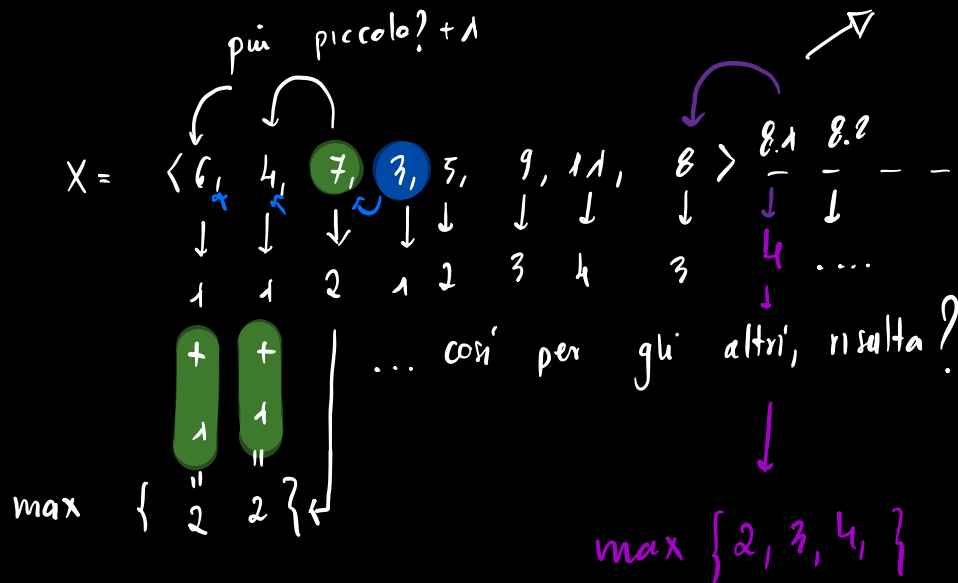 più piccolo? +1
8.1 8.2
X = < 6, 4, 7, 3, 5, 9, 11, 8 > _ _ _ _
1 1 2 1 2 3 4 3 4 ....
+ + ... così per gli altri, risulta?
1 1
= =
max { 2 2 }
max { 2, 3, 4, }